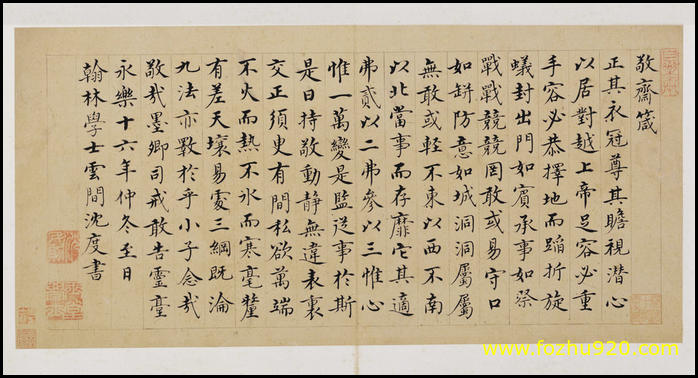 敬齋箴
正其衣冠尊其瞻視潛心
以居對越上帝足容必重
手容必恭擇地而蹈折旋
蟻封出門如賓承事如祭
戰戰兢兢罔敢或易守口
如缾防意如城洞洞屬屬
無敢或輕不東以西不南
以北當事而存靡它其適
弗貳以二弗參以三惟心
惟一萬變是監從事於斯
是曰持敬動靜無違表裏
交正須臾有間私欲萬端
不火而熱不冰而寒毫釐
有差天壤易處三綱既淪
九法亦斁於乎小子念哉
敬哉墨卿司戒敢告靈臺
永樂十六年仲冬至日
翰林學士雲間沈度書
www.fozhu920.com